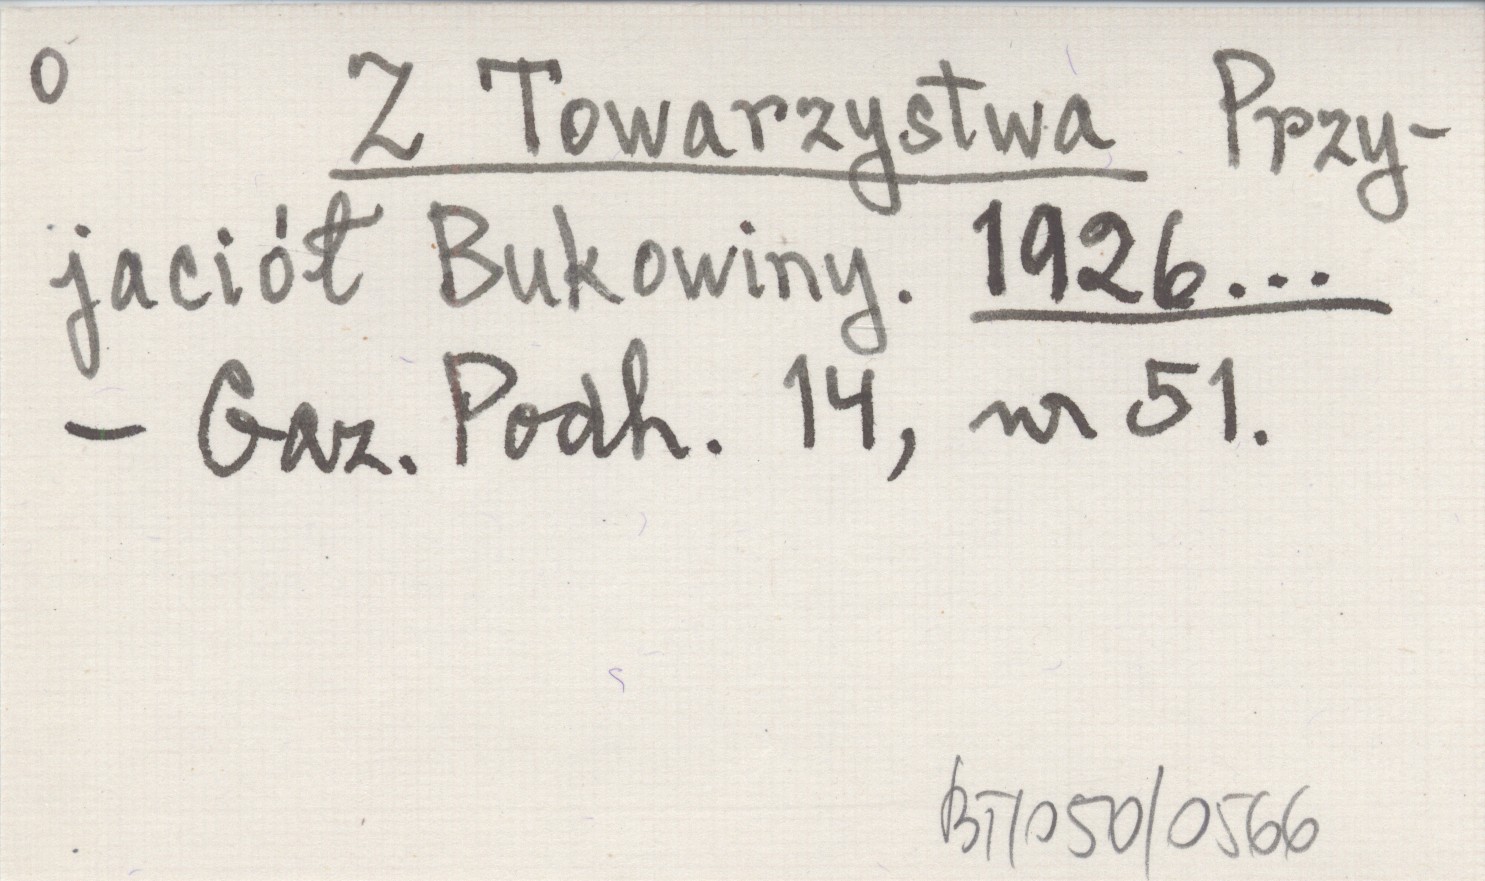 0 Z Towarzystwa Przy-
jaciół Bukowiny. 1926...
- Gaz. Podh. 14, nr 51.
BT/050/0566